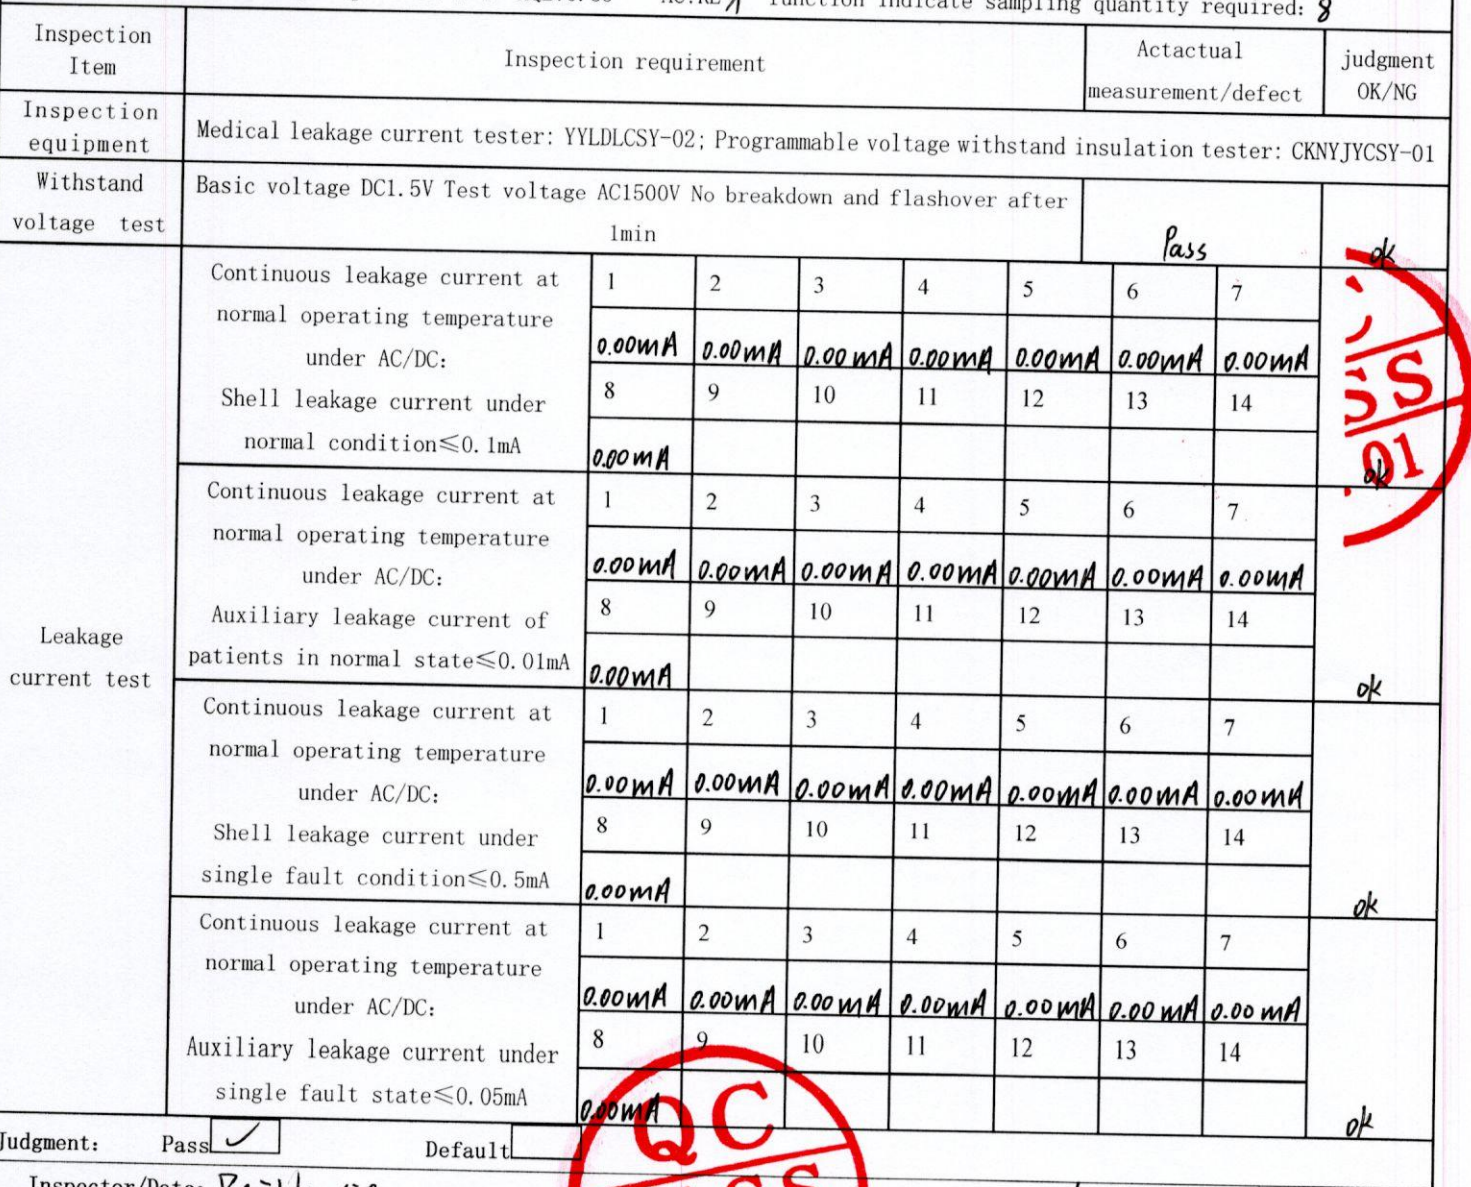 function indicate sampling quantity required: 8
Inspection Item
Inspection requirement
Actactual measurement/defect
judgment OK/NG
Inspection equipment
Medical leakage current tester: YYLDLCSY-02; Programmable voltage withstand insulation tester: CKNYJYCSY-01
Withstand voltage test
Basic voltage DC1.5V Test voltage AC1500V No breakdown and flashover after
1min
Pass
ok
Leakage
current test
Continuous leakage current at
normal operating temperature
under AC/DC:
Shell leakage current under
normal condition≤0.1mA
1 2 3 4 5 6 7
0.00mA 0.00mA 0.00mA 0.00mA 0.00mA 0.00mA 0.00mA
8 9 10 11 12 13 14
0.00mA
ok
Continuous leakage current at
normal operating temperature
under AC/DC:
Auxiliary leakage current of
patients in normal state≤0.01mA
1 2 3 4 5 6 7
0.00mA 0.00mA 0.00mA 0.00mA 0.00mA 0.00mA 0.00mA
8 9 10 11 12 13 14
0.00mA
ok
Continuous leakage current at
normal operating temperature
under AC/DC:
Shell leakage current under
single fault condition≤0.5mA
1 2 3 4 5 6 7
0.00mA 0.00mA 0.00mA 0.00mA 0.00mA 0.00mA 0.00mA
8 9 10 11 12 13 14
0.00mA
ok
Continuous leakage current at
normal operating temperature
under AC/DC:
Auxiliary leakage current under
single fault state≤0.05mA
1 2 3 4 5 6 7
0.00mA 0.00mA 0.00mA 0.00mA 0.00mA 0.00mA 0.00mA
8 9 10 11 12 13 14
0.00mA
ok
Judgment: Pass ✓ Default
QC
Inspector/Date: